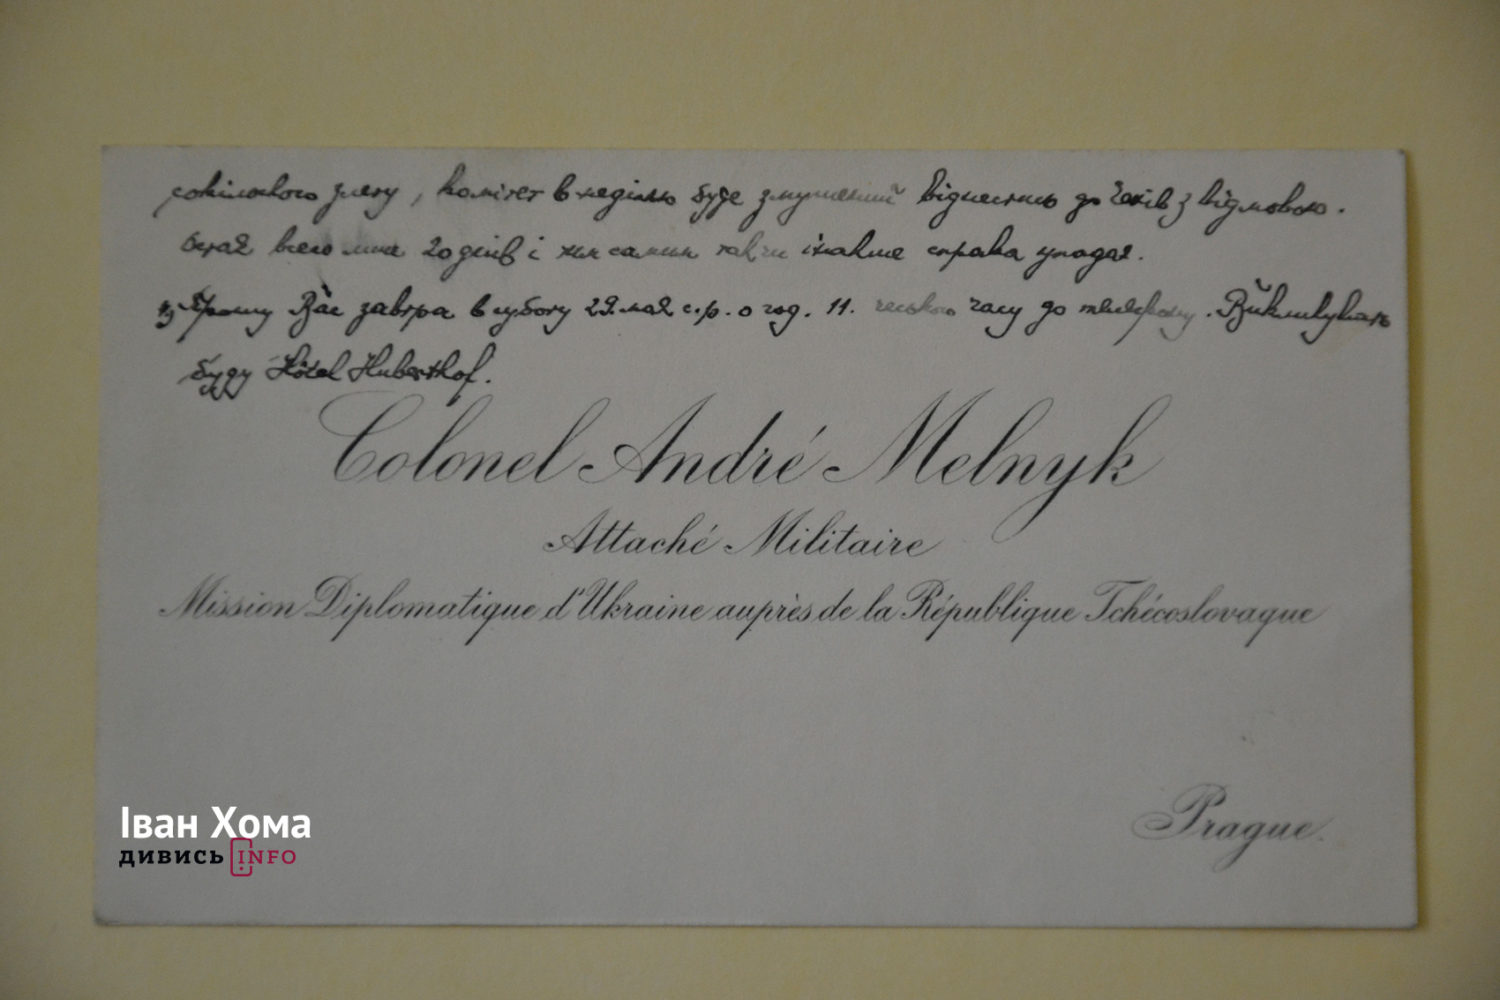 сокільского злету, комітет в неділю буде змушений віднестись до Чехів з відмовою.
всего лиш 20 днів і тим самим так чи інакше справа упадає.
Прошу Вас завтра в суботу 29. мая с.р. о год. 11. чеського часу до телєфону. Викликувать
буду Hôtel Huberthof.
Colonel André Melnyk
Attaché Militaire
Mission Diplomatique d'Ukraine auprès de la République Tchécoslovaque
Prague.
Іван Хома
дивись INFO